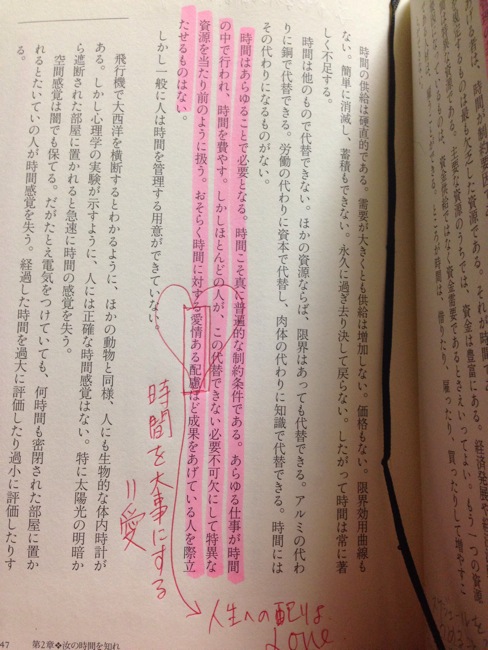 時間の供給は硬直的である。需要が大きくとも供給は増加しない。価格もない。限界効用曲線も
ない。簡単に消滅し、蓄積もできない。永久に過ぎ去り決して戻らない。したがって時間は常に著
しく不足する。
時間は他のもので代替できない。ほかの資源ならば、限界はあっても代替できる。アルミの代わ
りに銅で代替できる。労働の代わりに資本で代替し、肉体の代わりに知識で代替できる。時間には
その代わりになるものがない。
時間はあらゆることで必要となる。時間こそ真に普遍的な制約条件である。あらゆる仕事が時間
の中で行われ、時間を費やす。しかしほとんどの人が、この代替できない必要不可欠にして特異な
資源を当たり前のように扱う。おそらく時間に対する愛情ある配慮ほど成果をあげている人を際立
たせるものはない。
しかし一般に人は時間を管理する用意ができていない。
飛行機で大西洋を横断するとわかるように、ほかの動物と同様、人にも生物的な体内時計が
ある。しかし心理学の実験が示すように、人には正確な時間感覚はない。特に太陽光の明暗か
ら遮断された部屋に置かれると急速に時間の感覚を失う。
空間感覚は闇でも保てる。だがたとえ電気をつけていても、何時間も密閉された部屋に置か
れるとたいていの人が時間感覚を失う。経過した時間を過大に評価したり過小に評価したりす
る。
時間を大事にする
=愛
人生への配りょ
Love
47 第2章❖汝の時間を知れ